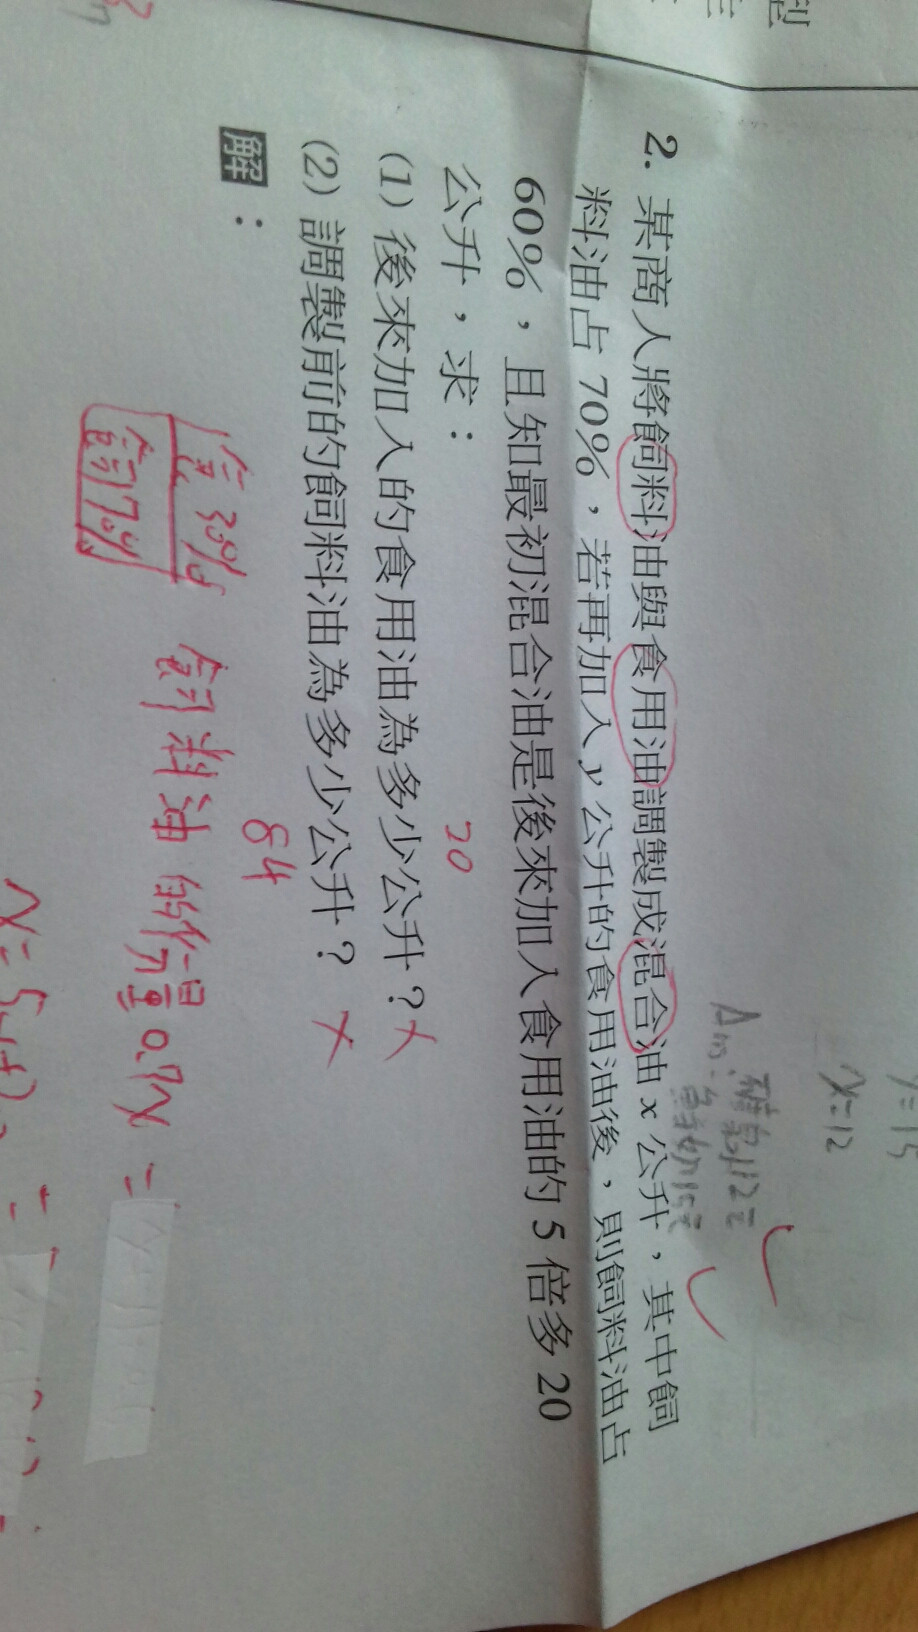 y=15
x=12
2. 某商人將飼料油與食用油調製成混合油 x 公升，其中飼
料油占 70%，若再加入 y 公升的食用油後，則飼料油占
60%，且知最初混合油是後來加入食用油的 5 倍多 20
公升，求：
20
(1) 後來加入的食用油為多少公升？
(2) 調製前的飼料油為多少公升？
84
解：
食 30%
飼 70%
飼料油的量 0.7x =